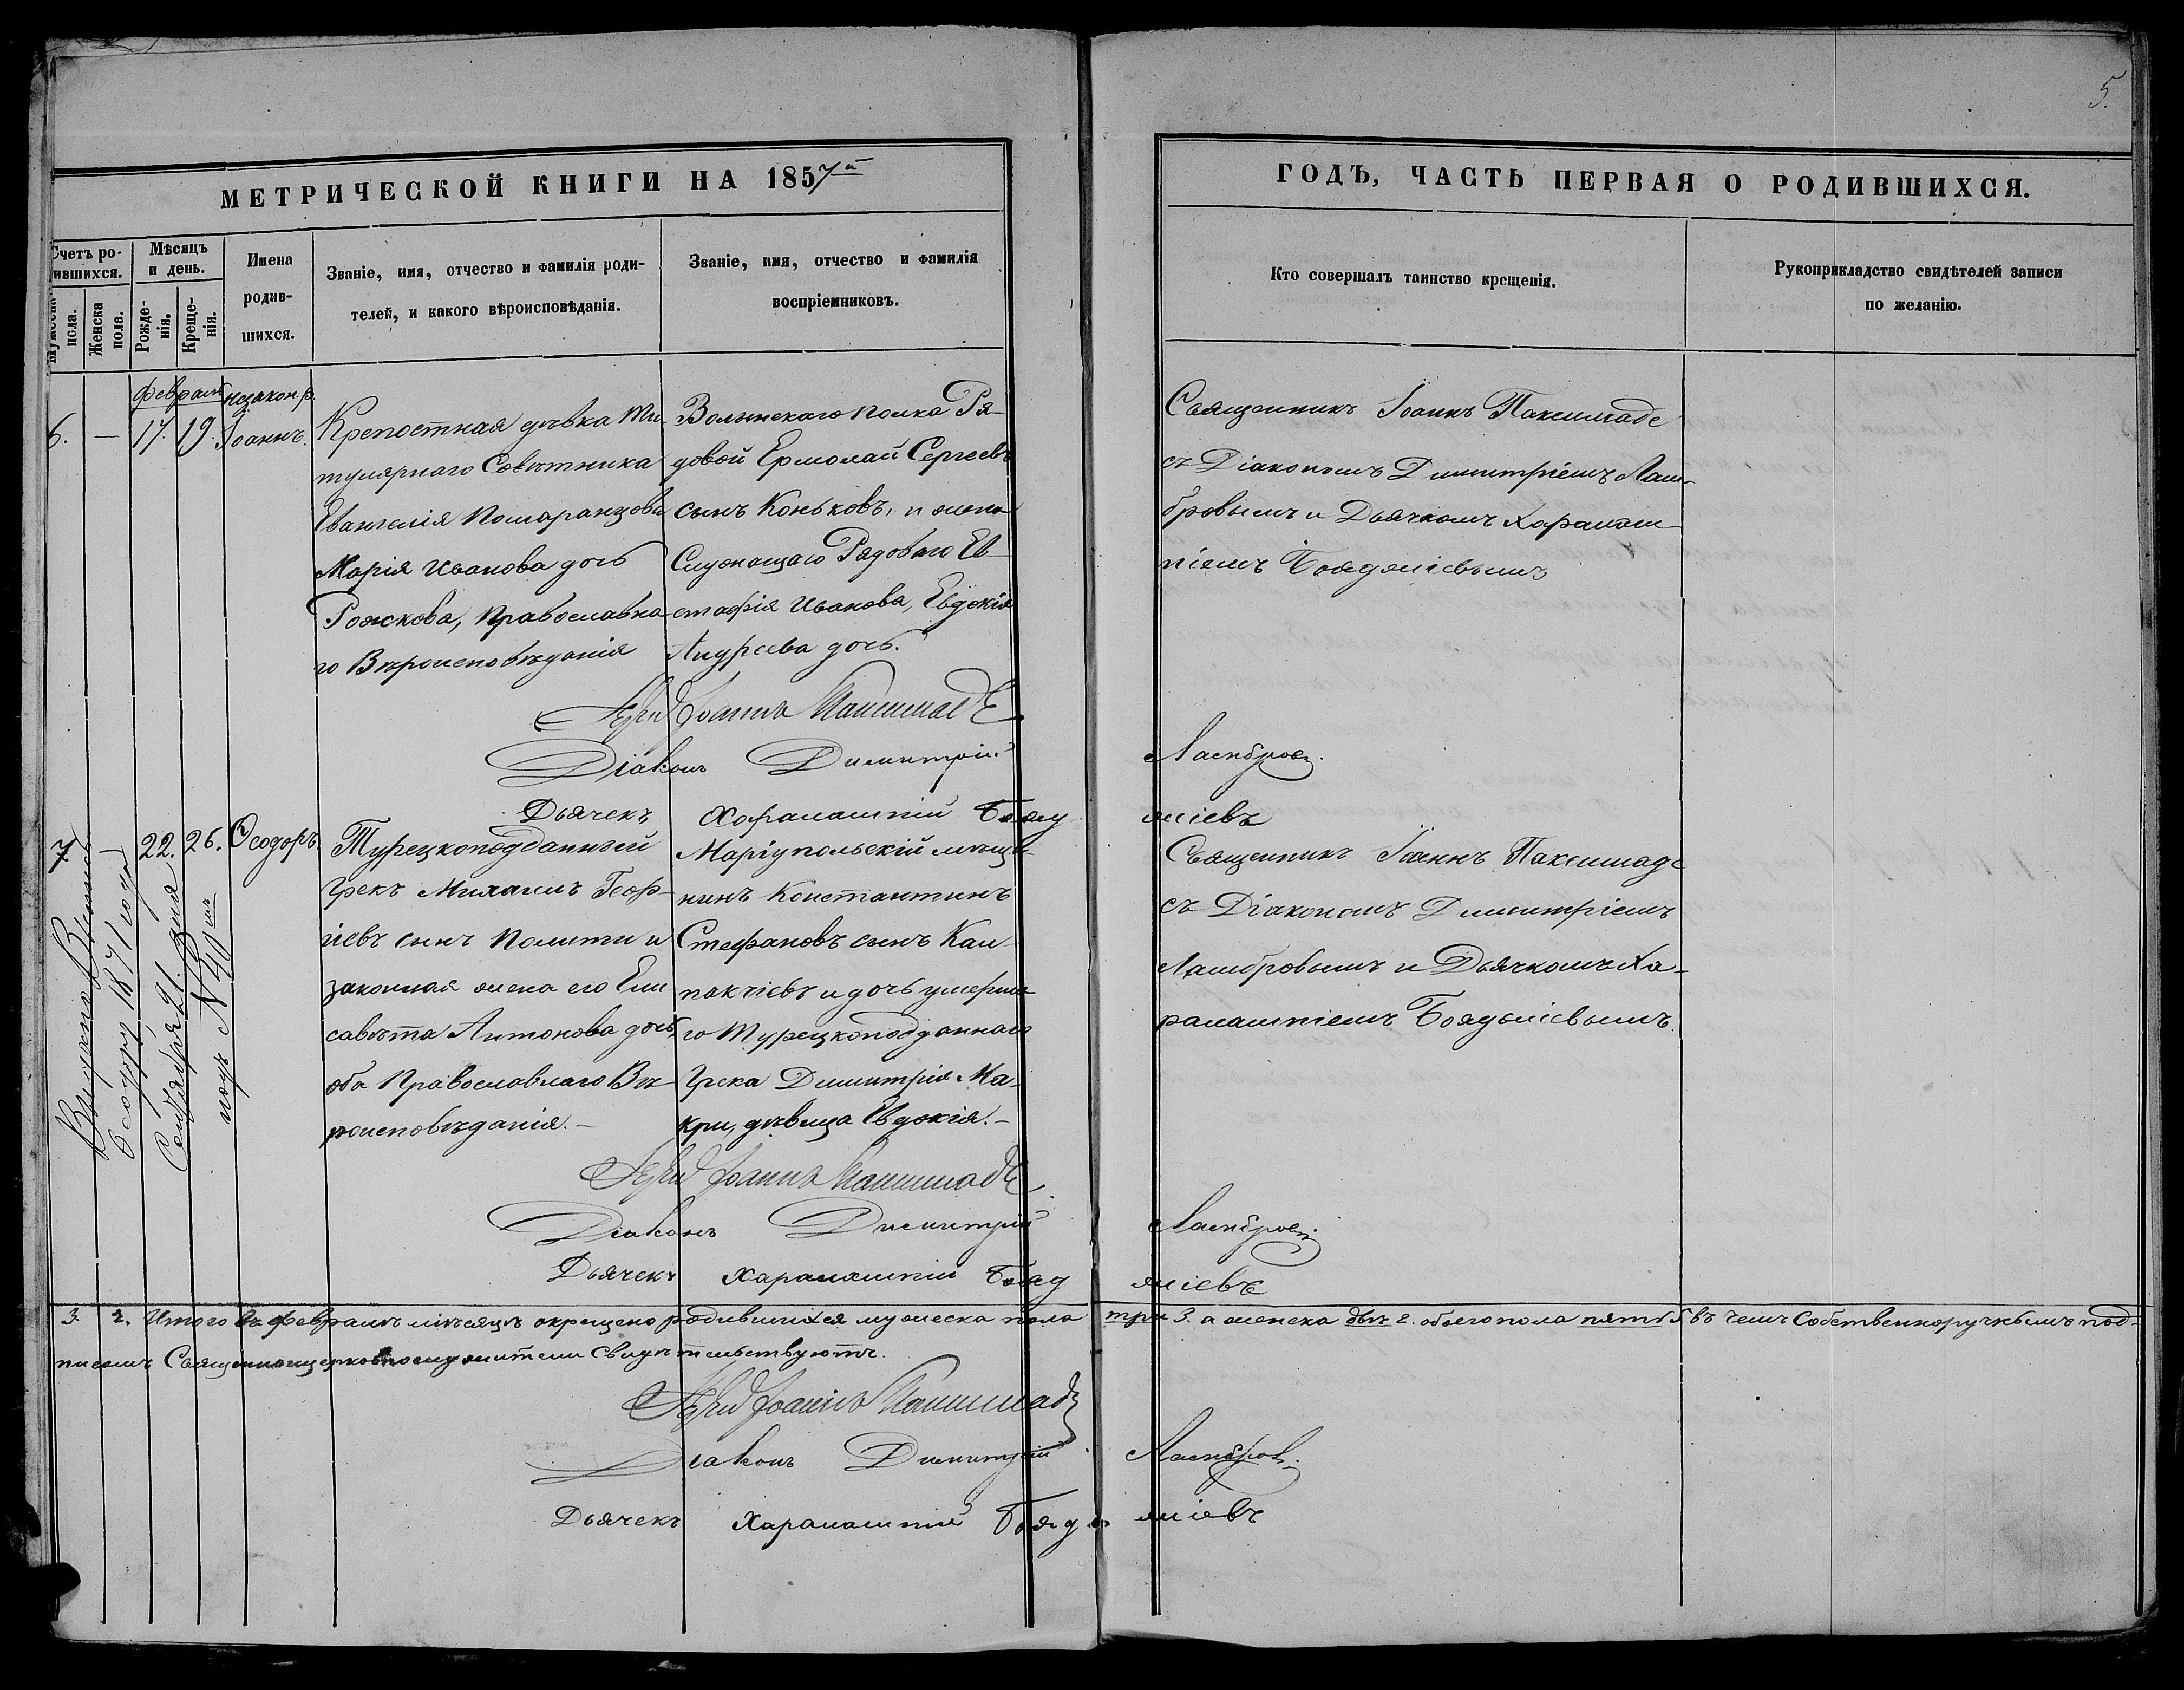 5.
МЕТРИЧЕСКОЙ КНИГИ НА 1857й
ГОДЪ, ЧАСТЬ ПЕРВАЯ О РОДИВШИХСЯ.
Счетъ ро-
дившихся.
Мужеска
пола.
Женска
пола.
Мѣсяцъ
и день.
Рожде-
нія.
Креще-
нія.
Имена
родив-
шихся.
Званіе, имя, отчество и фамилія роди-
телей, и какого вѣроисповѣданія.
Званіе, имя, отчество и фамилія
воспріемниковъ.
Кто совершалъ таинство крещенія.
Рукоприкладство свидѣтелей записи
по желанію.
Февраль
незакон. р.
6. — 17. 19. Іоаннъ.
Крепостная дѣвка Ти-
тулярнаго Совѣтника
Евангелія Померанцова
Марія Иванова дочь
Рожкова, Православна-
го Вѣроисповѣданія
Волынскаго полка Ря-
довой Ермолай Сергеевъ
сынъ Коньковъ, и жена
Служащаго Рядоваго Ев-
стафія Иванова, Евдокія
Андреева дочь.
Священникъ Іоаннъ Паксимаде
съ Діакономъ Димитріемъ Лам-
бровымъ и Дьячкомъ Харалам-
піемъ Бояджіевымъ
Іерей Іоаннъ Паксимаде
Діаконъ Димитрій Ламбровъ.
Дьячекъ Харалампій Бояджіевъ
7 22. 26. Ѳеодоръ.
Турецкоподданный
Грекъ Михаилъ Геор-
гіевъ сынъ Полити и
законная жена его Ели
савѣта Антонова дочь,
оба Православнаго Вѣ-
роисповѣданія.—
Маріупольскій мѣща-
нинъ Константинъ
Стефановъ сынъ Кал-
пакчіевъ и дочь умерша-
го Турецкоподданнаго
Грека Димитрія Ма-
кри, дѣвица Евдокія.—
Священникъ Іоаннъ Паксимаде
съ Діакономъ Димитріемъ
Ламбровымъ и Дьячкомъ Ха-
ралампіемъ Бояджіевымъ.
Выдана Выпись
Ѳеодору 1871 года
Сентября 21. дня
подъ № 40мъ
Іерей Іоаннъ Паксимаде
Діаконъ Димитрій Ламбровъ.
Дьячекъ Харалампій Бояджіевъ
3. 2. Итого въ Февралѣ мѣсяцѣ окрещено родившихся мужеска пола три 3. а женска двѣ 2. обоего пола пять 5 въ чемъ Собственноручнымъ под-
писомъ Священноцерковнослужители свидѣтельствуютъ.
Іерей Іоаннъ Паксимаде
Діаконъ Димитрій Ламбровъ.
Дьячекъ Харалампій Бояджіевъ